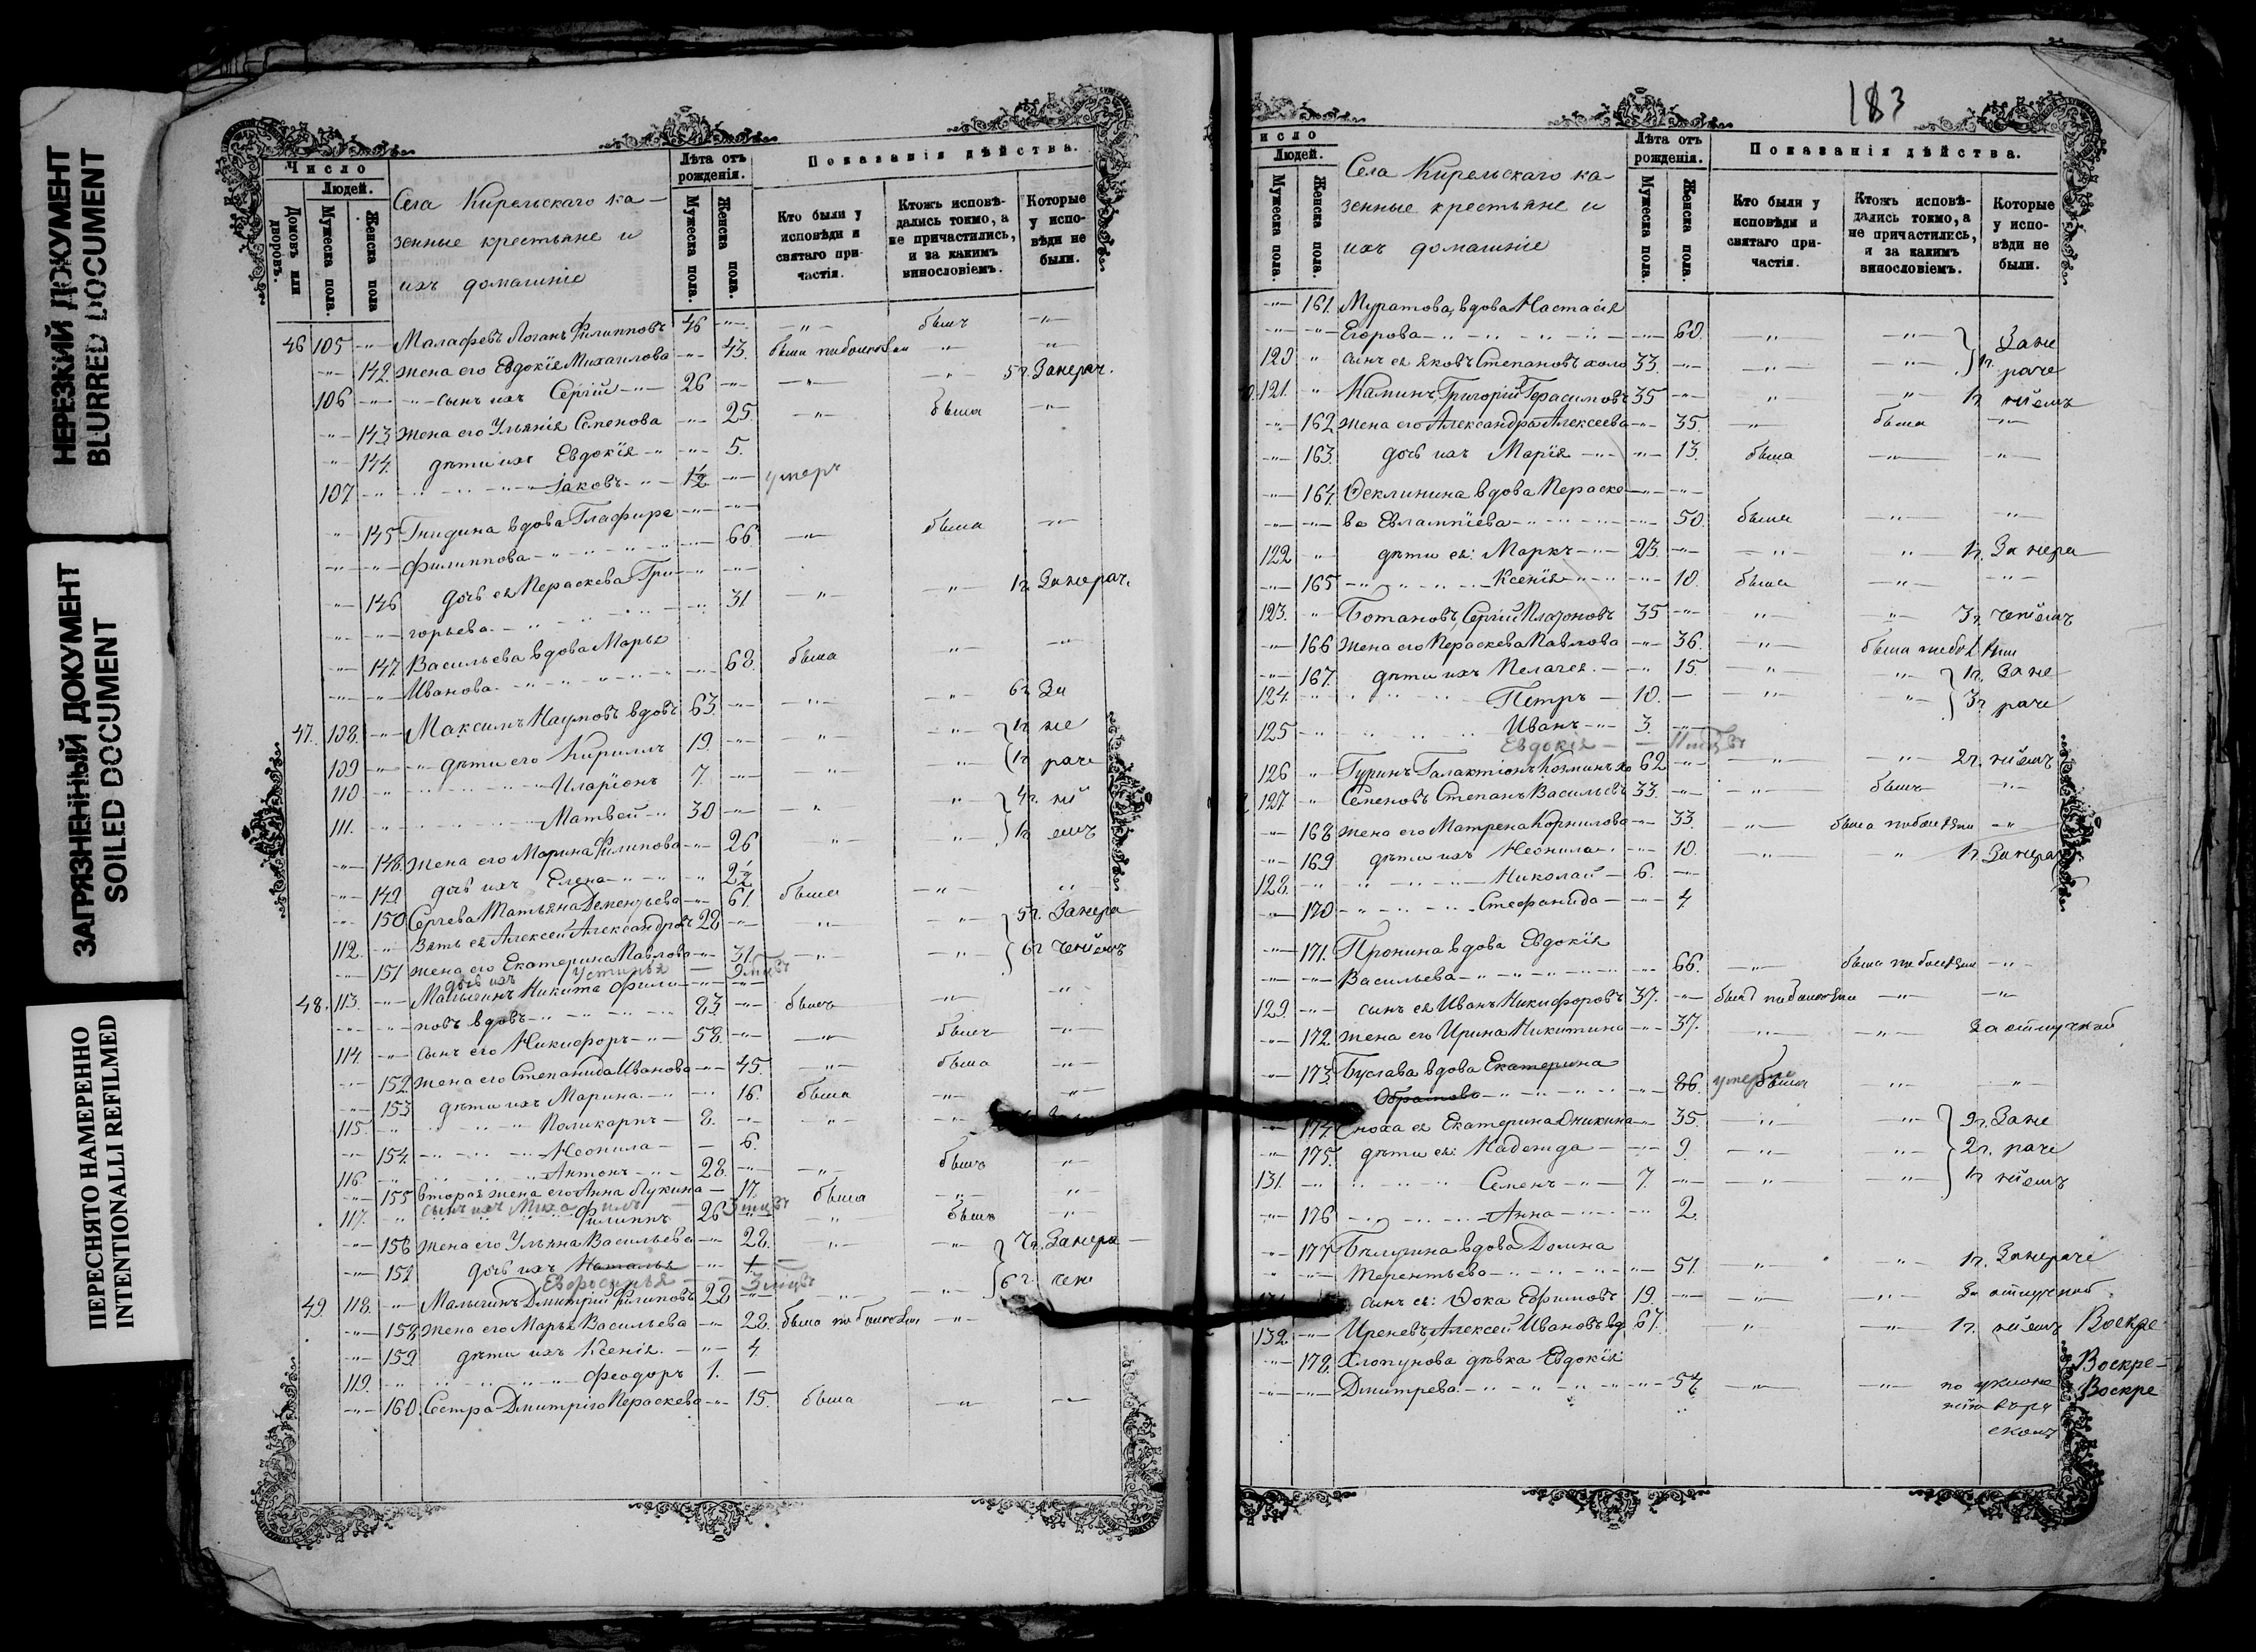 НЕРЕЗКИЙ ДОКУМЕНТ
BLURRED DOCUMENT
ЗАГРЯЗНЕННЫЙ ДОКУМЕНТ
SOILED DOCUMENT
ПЕРЕСНЯТО НАМЕРЕННО
INTENTIONALLI REFILMED
Число
Людей.
Домовъ или дворовъ.
Мужеска пола.
Женска пола
Села Кирельскаго ка-
зенные крестьяне и
ихъ домашніе
Лѣта отъ рожденія.
Мужеска пола.
Женска пола.
Показанія дѣйства.
Кто были у исповѣди и святаго причастія.
Ктожъ исповѣдались токмо, а не причастились, и за какимъ винословіемъ.
Которые у исповѣди не были.
46 105 Малафевъ Логанъ Филипповъ 46 былъ
142 жена его Евдокія Михаилова 43.
106 сынъ ихъ Сергій 26 5 г. Занерач.
143 жена его Ульянія Семенова 25. была
144. дѣти ихъ Евдокія 5.
107 Іаковъ 1½ умеръ
145 Гнидина вдова Глафира
Филиппова 66. была
146 дочь ея Пераскева Гри-
горьева 31 1 г. Занерач.
147 Васильева вдова Марья
Иванова 68. была
47. 108. Максимъ Наумовъ вдовъ 63. 6 г. За
109 дѣти его Кириллъ 19. 1 г. не
110 Иларіонъ 7. 1 г. раче
111. Матвей 30 4 г. ні
148. жена его Марина Филипова 26 1 г. емъ
149 дочь ихъ Елена 2½
150 Сергева Татьяна Дементьева 61. была
112. Зять ея Алексей Александровъ 28 5 г. Занера
151 жена его Екатерина Павлова 31. 6 г. ченіемъ
дочь ихъ Устинья 9 мцвъ
48. 113. Малыгинъ Никита Фили-
повъ вдовъ 83. былъ
114. сынъ его Никифоръ 58. былъ
152 жена его Степанида Иванова 45. была
153 дѣти ихъ Марина 16. была
115. Поликарпъ 8.
154. Неонила 6.
116 Антонъ 28. былъ
155 вторая жена его Анна Лукина 17. была
сынъ ихъ Михаилъ 3 мцвъ
117. Филиппъ 26 былъ
156 жена его Ульяна Васильева 28. 7 г. Занера
157 дочь ихъ Наталья 1
Евфросинья 3 мцвъ 6 г. чен
49. 118. Малыгинъ Дмитрій Филиповъ 28
158 жена его Марья Васильева 28.
159 дѣти ихъ Ксенія 4
119. Феодоръ 1.
160. Сестра Дмитрію Пераскева 15. была
183
исло
Людей.
Мужеска пола.
Женска пола.
Села Кирельскаго ка-
зенные крестьяне и
ихъ домашніе
Лѣта отъ рожденія.
Мужеска пола.
Женска пола.
Показанія дѣйства.
Кто были у исповѣди и святаго причастія.
Ктожъ исповѣдались токмо, а не причастились, и за какимъ винословіемъ.
Которые у исповѣди не были.
161. Муратова, вдова Настасія
Егорова 60. Зане
120 сынъ ея Яковъ Степановъ холо 33. 1 г. раче
121. Каминъ, Григорій Герасимовъ 35 1 г. ніемъ
162 жена его Александра Алексеева 35. была
163. дочь ихъ Марія 13. была
164 Феклинина вдова Пераске-
ва Евлампіева 50. была
122 дѣти ея: Маркъ 23. 1 г. Занера
165 Ксенія 10. была
123. Ботановъ, Сергій Платоновъ 35 3 г. ченіемъ
166 жена его Пераскева Павлова 36.
167. дѣти ихъ Пелагея 15. 1 г. Зане
124. Петръ 10. 3 г. раче
125 Иванъ 3.
Евдокія
126 Гуринъ Галактіонъ Козминъ хо 62 2 г. ніемъ
127 Семеновъ Степанъ Васильевъ 33. былъ
168 жена его Матрена Корнилова 33.
169 дѣти ихъ Неонила 10. 1 г. Занерач
128. Николай 6.
170 Стефанида 4
171. Пронина вдова Евдокія
Васильева 66.
129. сынъ ея Иванъ Никифоровъ 37.
172 жена его Ирина Никитина 37. За отлучкой
173. Буслава вдова Екатерина
86. умерла была
174. Сноха ея Екатерина Аникина 35. 9 г. Зане
175. дѣти ея: Надежда 9. 2 г. раче
131. Семенъ 7. 1 г. ніемъ
176 Анна 2.
177 Белугина вдова Домна
Терентьева 51. 1 г. Занераче
сынъ ея: Фока Ефимовъ 19. За отлучкой
132. Иреневъ, Алексей Ивановъ вд 67. 1 г. ніемъ Воскре-
178. Хлопунова дѣвка Евдокія Воскре-
Дмитрева 54 по уклоне Воскре
нію въ ра
сколъ